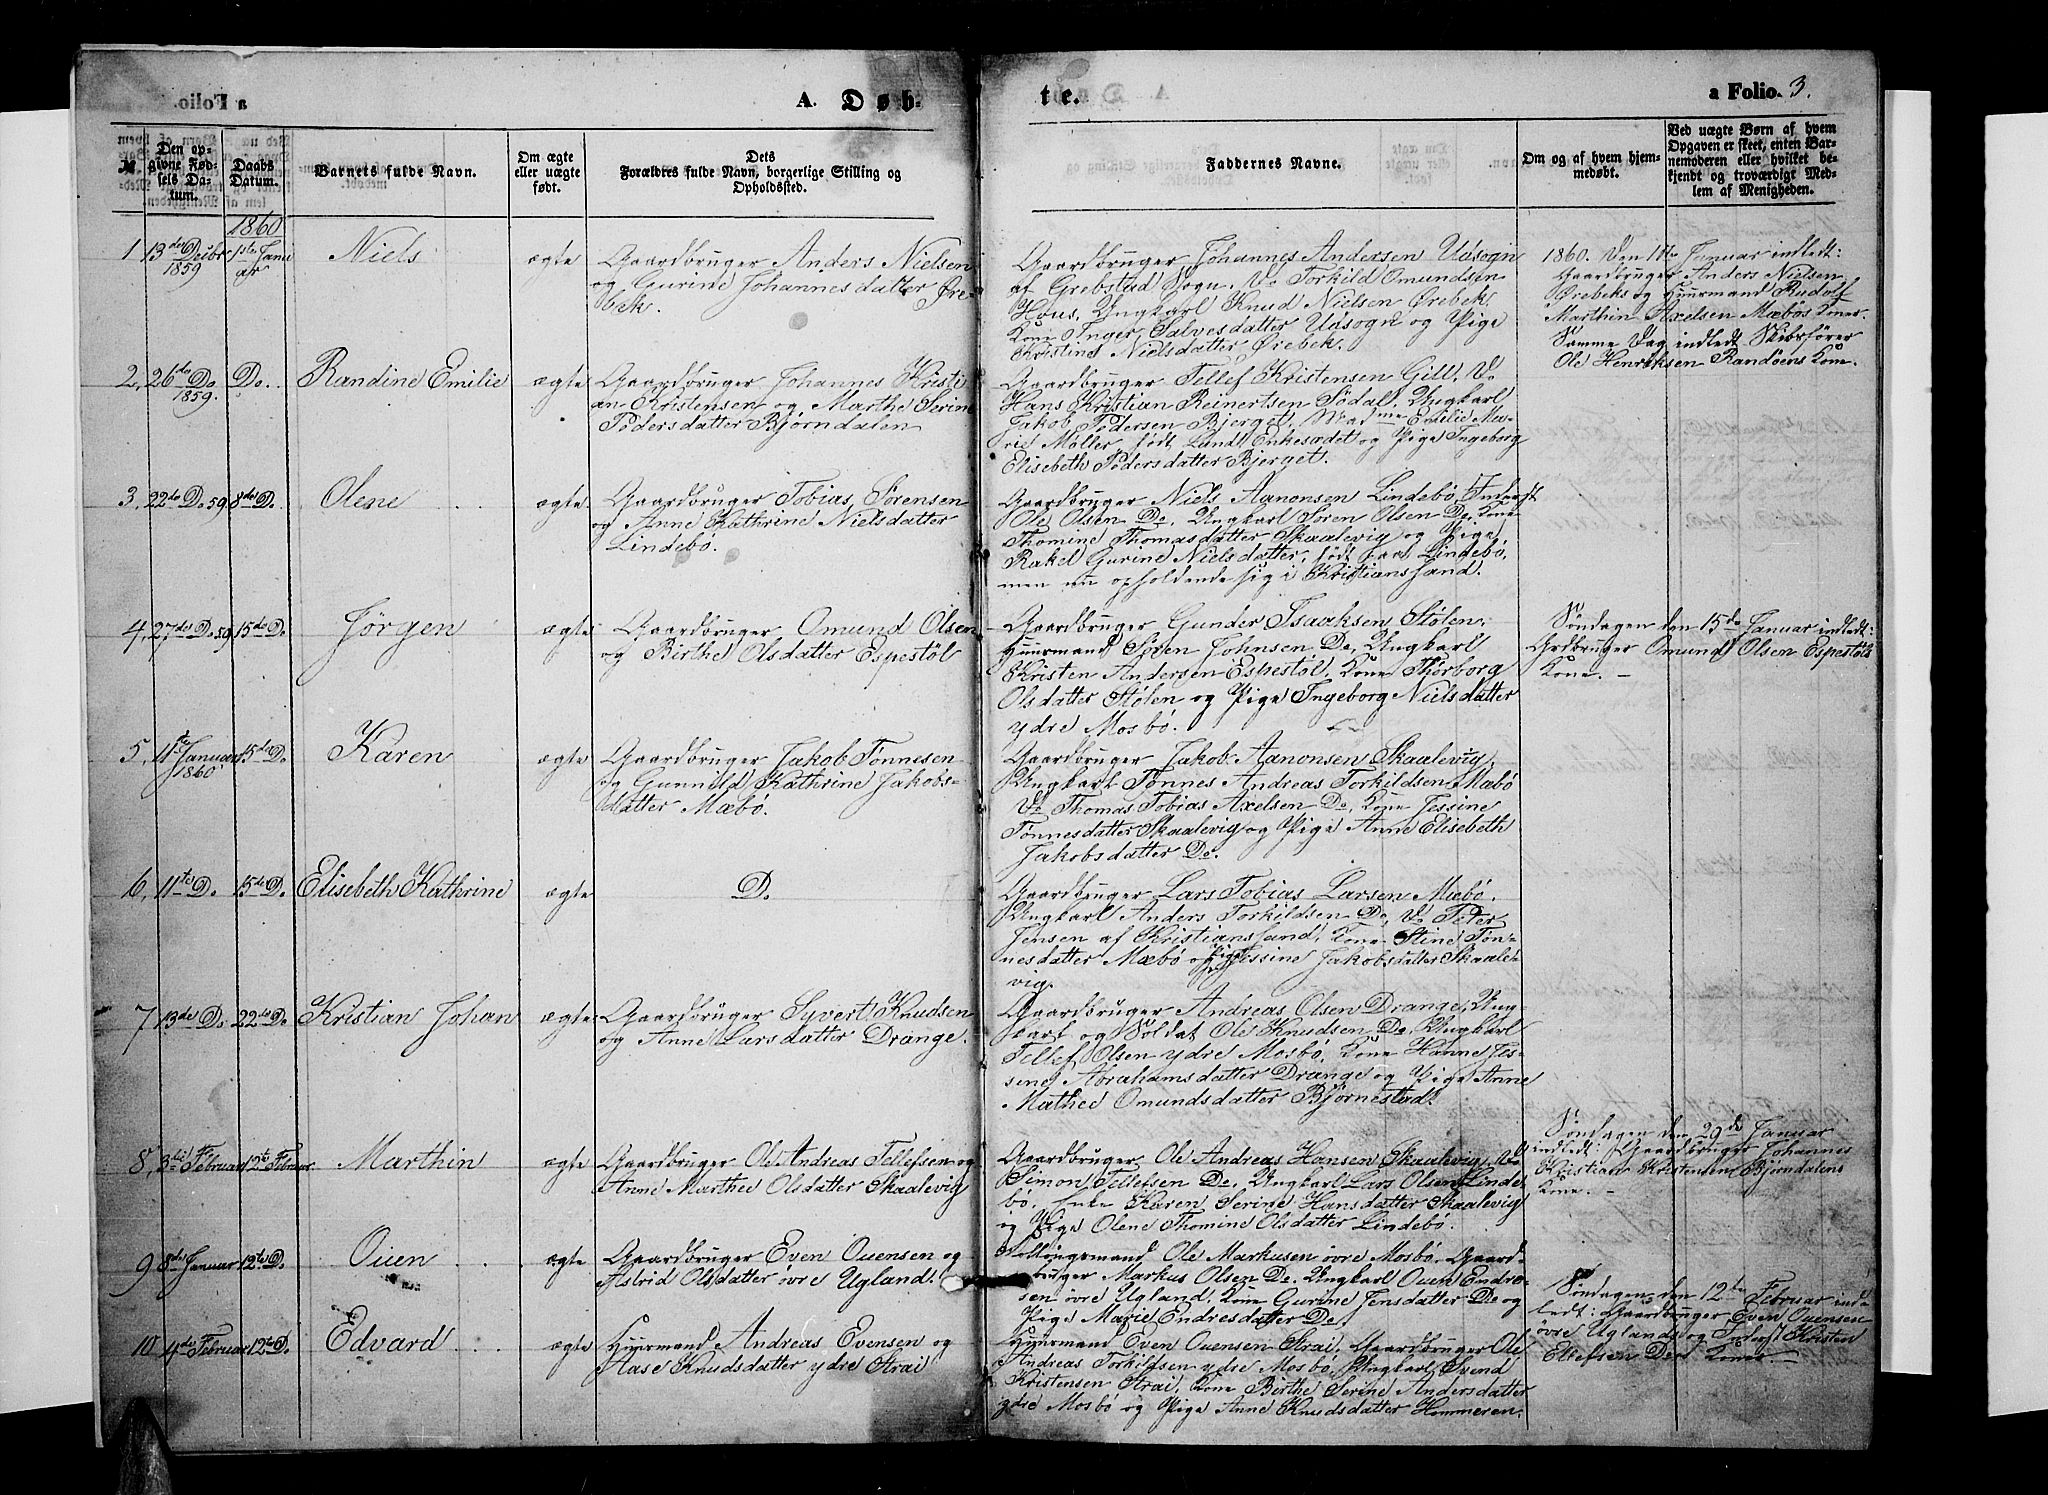 A. Døb-
te.
a Folio 3.
№.
Den op-
givne Fød-
sels Da-
tum.
Daabs
Datum.
Barnets fulde Navn.
Om ægte
eller uægte
født.
Dets
Forældres fulde Navn, borgerlige Stilling og
Opholdssted.
Faddernes Navne.
Om og af hvem hjem-
medøbt.
Ved uægte Børn af hvem
Opgaven er skeet, enten Bar-
nemoderen eller hvilket be-
kjendt og troværdigt Med-
lem af Menigheden.
1860
1 13de Decibr 1859
1ste Janu
ar
Niels
ægte
Gaardbruger Anders Nielsen
og Gurine Johannesdatter Øre-
bek.
Gaardbruger Johannes Andersen Udsogn
af Grebstad Sogn. Do Torkild Omundsen
Hous, Ungkarl Knud Nielsen Ørebek,
Kone Inger Salvesdatter Udsogn og Pige
Kristine Nielsdatter Ørebek.
1860. Den 1ste Januar indledt:
Gaardbruger Anders Nielsen
Ørebeks og Huurmand Rudolf
Marthin Axelsen Mæbøs Koner.
Samme Dag indledt Skibsfører
Ole Henriksen Randøens Kone.
2, 26de Do 1859.
Do.
Randine Emilie
ægte
Gaardbruger Johannes Kristi
an Kristensen og Marthe Serine
Pedersdatter Bjørndalen
Gaardbruger Tellef Kristensen Gill, Do
Hans Kristian Reinertsen Sødal. Ungkarl
Jakob Pedersen Bjerget, Madme Emilie Ma-
rie Møller, født Lundt Enkesædet og Pige Ingeborg
Elisebeth Pedersdatter Bjerget.
3, 22de D. 59
8de D.
Olene
ægte
Gaardbruger Tobias Sørensen
og Anne Kathrine Nielsdatter
Lindebø.
Gaardbruger Niels Aanonsen Lindebø, Inderst
Ole Olsen De, Ungkarl Søren Olsen De, Kone
Thomine Thomasdatter Skaalevig og Pige
Rakel Gurine Nielsdatter, født paa Lindebø,
men nu opholdende sig i Kristianssand.
4, 27de D. 59
15de D.
Jørgen
ægte
Gaardbruger Omund Olsen
og Birthe Olsdatter Espestøl
Gaardbruger Gunder Isaaksen Stølen,
Huurmand Søren Johnsen De, Ungkarl
Kristen Andersen Espestøl, Kone Thorborg
Olsdatter Stølen og Pige Ingeborg Nielsdatter
ydre Mosbø.
Søndagen den 15de Januar indledt:
Grdbruger Omund Olsen Espestøls
Kone. –
5, 11te Januar 1860
15de D.
Karen
ægte
Gaardbruger Jakob Tønnesen
og Gunnild Kathrine Jakobs-
datter Mæbø.
Gaardbruger Jakob Aanonsen Skaalevig,
Ungkarl Tønnes Andreas Torkildsen Mæbø
Do Thomas Tobias Axelsen De, Kone Jessine
Tønnesdatter Skaalevig og Pige Anne Elisebeth
Jakobsdatter De.
6, 11te D.
15de D.
Elisebeth Kathrine
ægte
D.
Gaardbruger Lars Tobias Larsen Mæbø.
Ungkarl Anders Torkildsen De, Do Peter
Jensen af Kristianssand, Kone Stine Tøn-
nesdatter Mæbø og Pige Jessine Jakobsdatter Skaale-
vig.
7 13de D.
22de D.
Kristian Johan
ægte
Gaardbruger Syvert Knudsen
og Anne Larsdatter Drange.
Gaardbruger Andreas Olsen Drange, Ung-
karl og Soldat Ole Knudsen De, Ungkarl
Tellef Olsen ydre Mosbø, Kone Hanne Jes-
sine Abrahamsdatter Drange og Pige Anne
Mathea Omundsdatter Bjørnestad.
8, 3die Februar
12te Februar
Marthin
ægte
Gaardbruger Ole Andreas Tellefsen og
Anne Marthea Olsdatter Skaalevig
Gaardbruger Ole Andreas Hansen Skaalevig, Do
Simon Tellefsen De. Ungkarl Lars Olsen Linde
bø, Enke Karen Serine Hansdatter Skaalevig
og Pige Olene Thomine Olsdatter Lindebø.
Søndagen den 29de Januar
indledt: Gaardbruger Johannes
Kristian Kristensens Bjørndalens
Kone. –
9 8de Januar
12te D.
Ouen
ægte
Gaardbruger Even Ouensen og
Astrid Olsdatter øvre Ugland.
Ole Markusen øvre Mosbø. Gaard-
bruger Markus Olsen De. Ungkarl Ouen Endre-
sen øvre Ugland. Kone Gurine Jensdatter De og
Pige Marie Endresdatter De.
Søndagen den 12te Februar ind-
ledt: Gaardbruger Even Ouensen
øvre Uglands og Inderst Kristen
Ellefsen Des Koner. –
10 4de Februar
12te D.
Edvard
ægte
Huurmand Andreas Evensen og
Aase Knudsdatter ydre Strai
Huurmand Even Ouensen Strai, Gaardbruger Ole
Andreas Torkildsen ydre Mosbø, Ungkarl Svend
Kristensen Strai, Kone Birthe Serine Andersdatter
ydre Mosbø og Pige Anne Knudsdatter Hommeren.